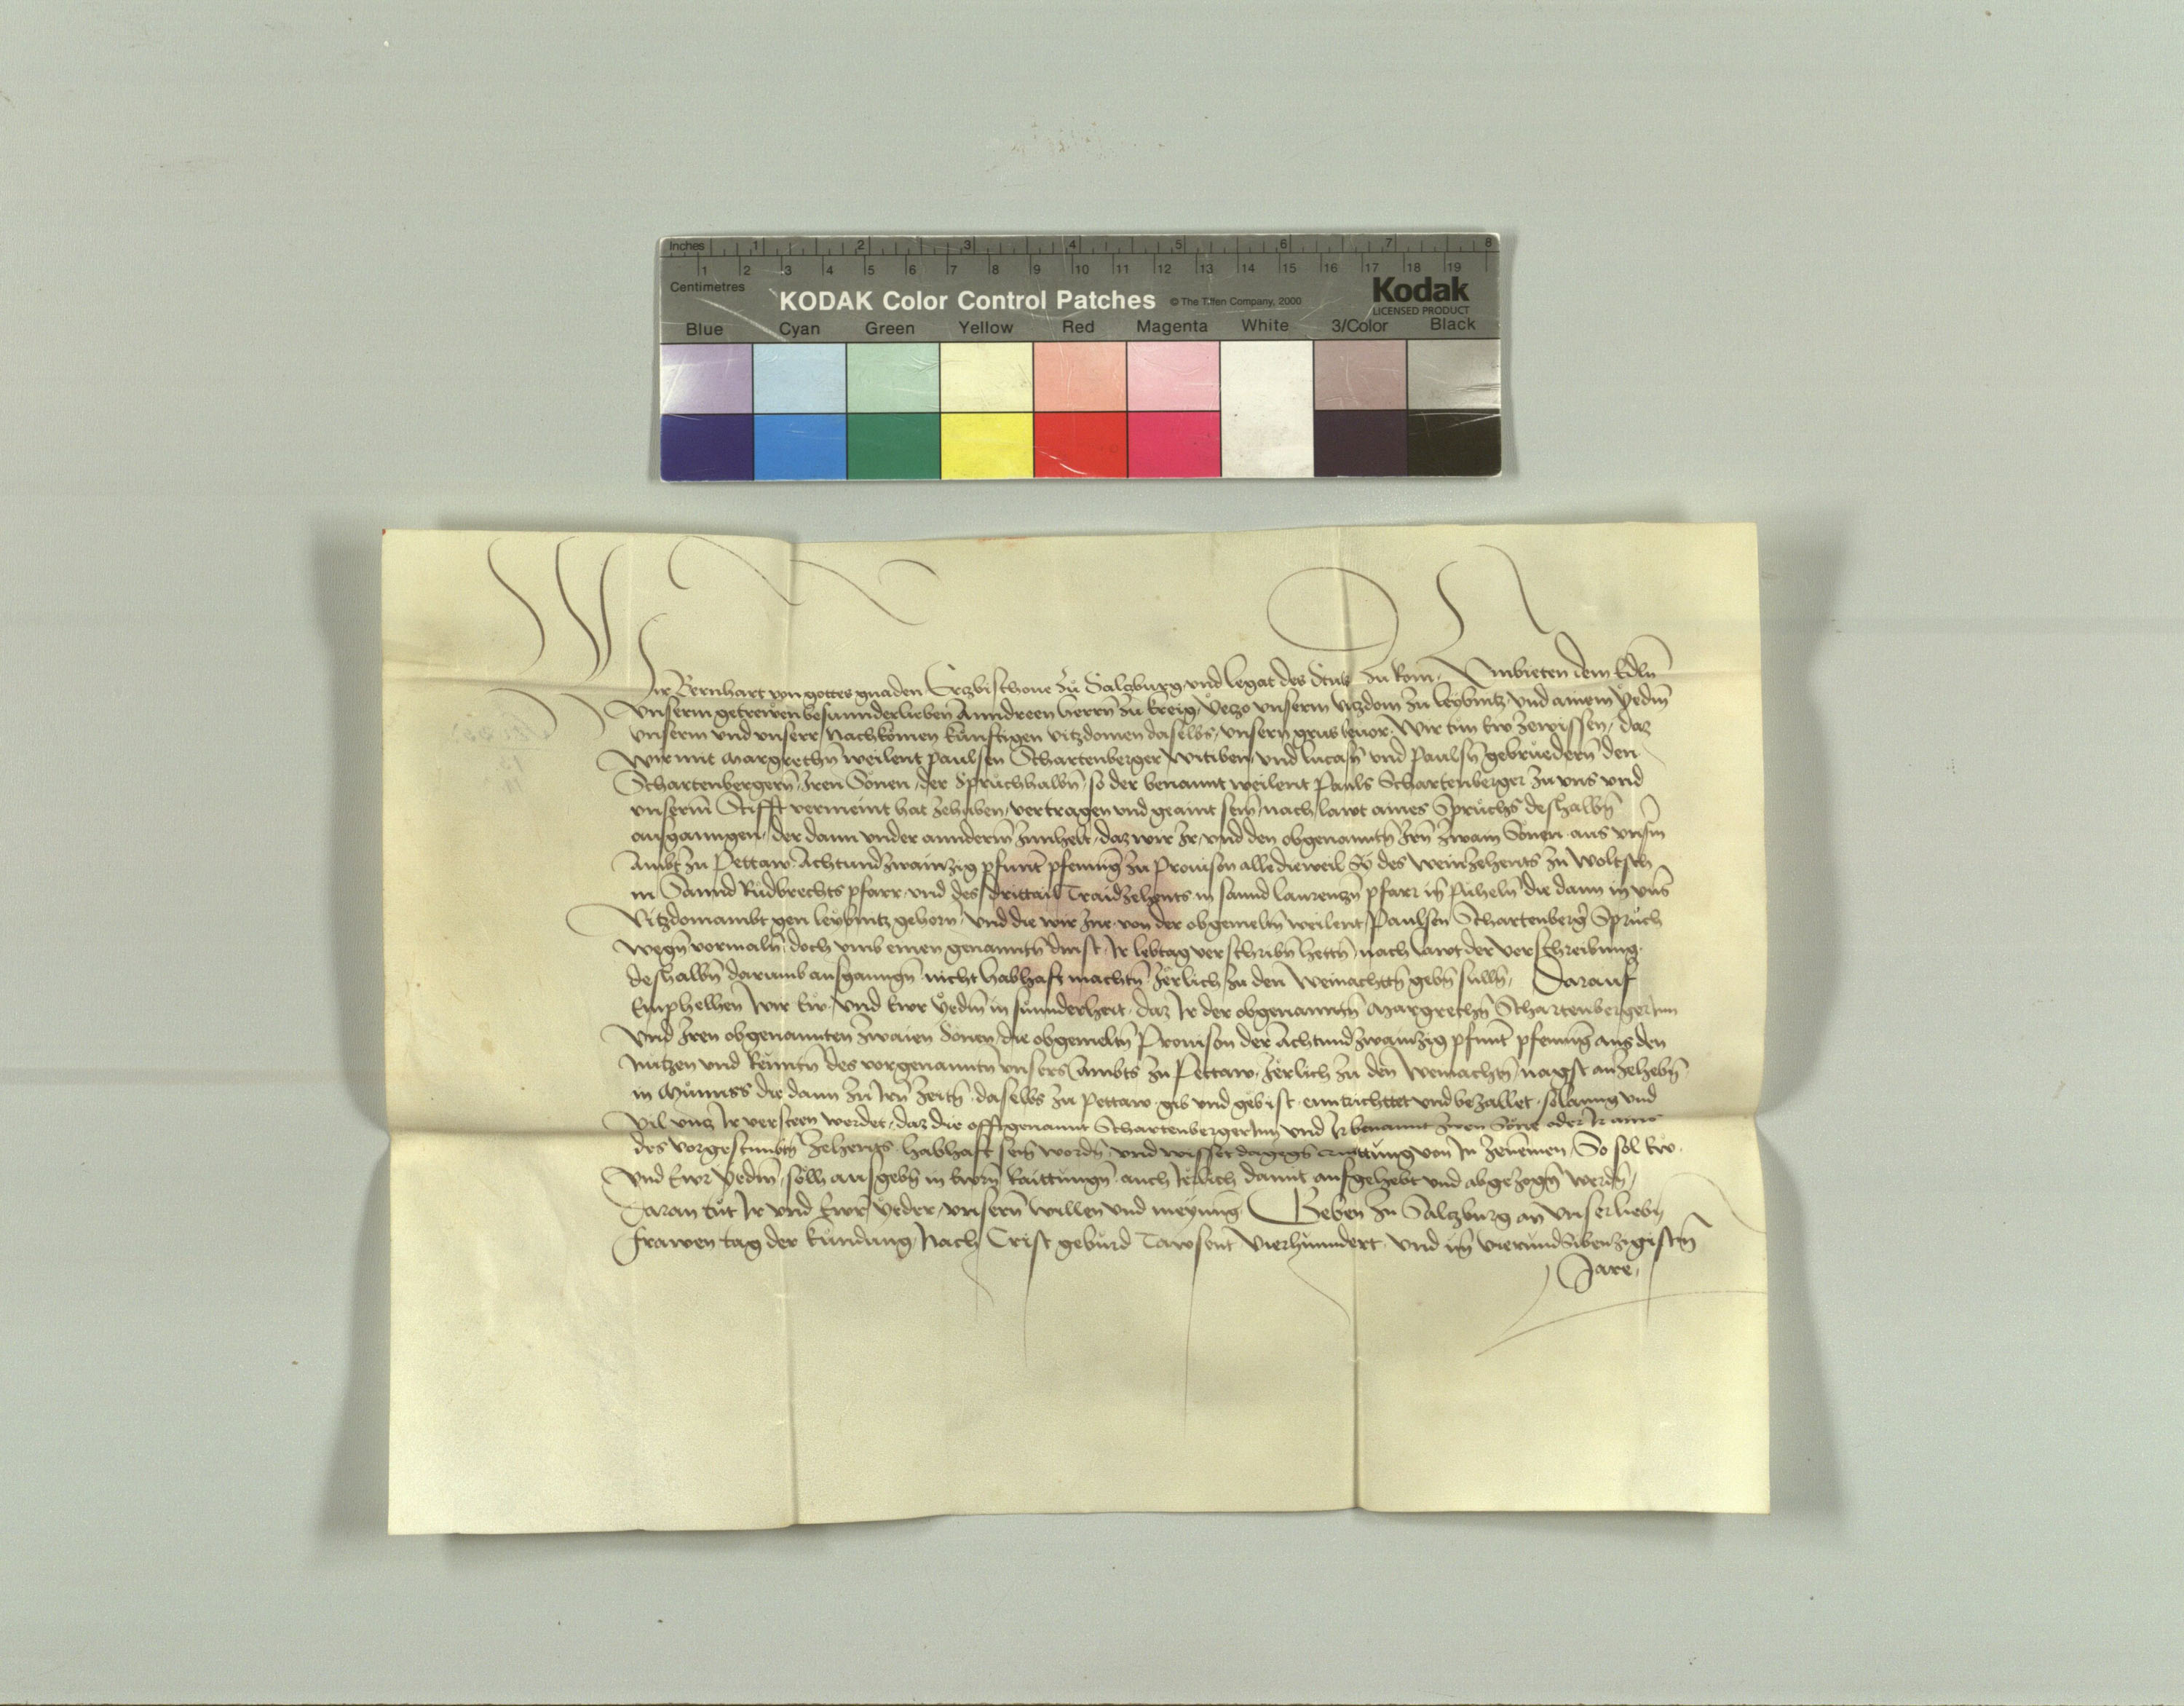 Inches 1 2 3 4 5 6 7 8
1 2 3 4 5 6 7 8 9 10 11 12 13 14 15 16 17 18 19
Centimetres
KODAK Color Control Patches © The Tiffen Company, 2000 Kodak
LICENSED PRODUCT
Blue Cyan Green Yellow Red Magenta White 3/Color Black
Wir Bernhart von gottes gnaden Erczbischoue zů Salczburg und legat des Stuls zu Rom, Embieten dem Edln
unserm getrewen besunnderlieben Anndreen herrn zu Kreig, yeczo unserm viczdom zu leybnitz, und ainem yedm
unserm und unserr nachkomen kunftigen vitzdomen daselbs, unsern grus beuor. Wir tun ew zewissen, daz
wir mit Margrethn weilent Paulsen Schartenberger witiben, und lucasn und Paulsn gebruedern den
Schartenbergern, Iren Sönen, der Spruchhalbn, so der benannt weilent Pauls Schartenberger zu uns und
unserm Stifft vermeint hat zehaben, vertragen und geaint sein, nach lawt aines Spruchs deshalbn
ausganngen, der dann under annderm Innhelt, daz wir Ir, und den obgenanntn Irn zwain Sönen aus unsm
Ambt zu Pettaw Achtundzwainzig pfunt pfennig zu Prouison alledieweil Sy des Weinzehents zu Woltsch
in Sannd Rudbrechts pfarr, und des drittail Traidzehents in sannd laurenczn pfarr in Puheln die dann in uns
Vitzdomambt gen leybnitz gehorn, und die wir Im von der obgemeltn weilent Paulsen Schartenberger Spruch
wegn vormaln, doch umb einen genanntn dinst, Ir lebtag verschribn hettn, nach lawt der verschreibung
deshalbn darumb ausganngn nicht habhaft machtn, Jerlich zu den Weinachttn gebn sulln, Darauf
Emphelhen wir Ew, und Ewr yedm in sunnderheit, daz Ir der obgenanntn Margrethn Schartenbergerinn
und Iren obgenannten zwaien Sönen, die obgemeltn Prouison der Achtundzwainzig pfunt pfennig aus den
nutzen und Renntn des vorgenanntn unsers Ambts zu Pettaw, Jerlich zu den Weinachtn, nagst anzehebn
in Münnss die dann zu Irn zeitn daselbs zu Pettaw gib und geb ist, enntrichttet und bezallet, solanng und
vil uncz Ir versteen werdet, daz die offtgenannt Schartenbergerinn und Ir benannt zwen Söne oder Ir ains
des vorgestimbtn zehents habhaft sein wordn, und wisset dagegn quittung von In zenemen, So sol Ew
und Ewr yedm, solh ausgebn in Ewrn Raittungn auch Jerlich damit aufgehebt und abgezogn werdn,
Daran tut Ir und Ewr yeder, unsern willen und meynung. Geben zu Salczburg an unser liebn
frawen tag der kundung, Nach Crist geburd Tawsent vierhunndert und im vierundsibenzigistn
Jare,